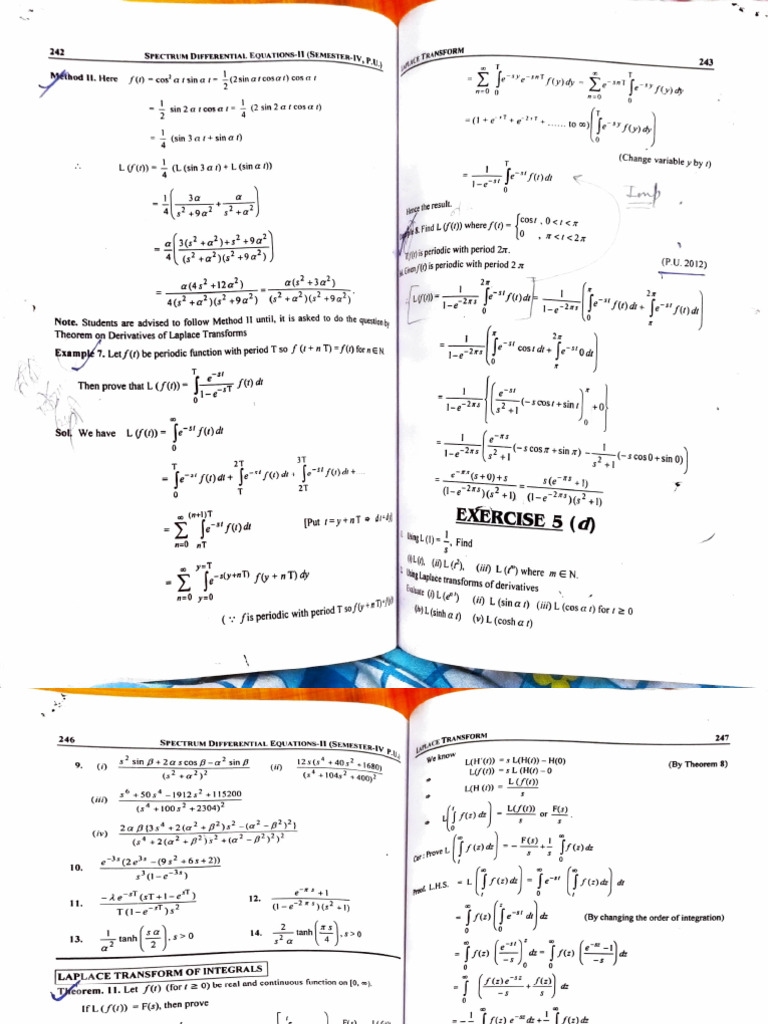 242
SPECTRUM DIFFERENTIAL EQUATIONS-II (SEMESTER-IV, P.U.)
Method II. Here f(t) = cos² α t sin α t = 1/2 (2 sin α t cos α t) cos α t
= 1/2 sin 2 α t cos α t = 1/4 (2 sin 2 α t cos α t)
= 1/4 (sin 3 α t + sin α t)
∴ L (f(t)) = 1/4 (L (sin 3 α t) + L (sin α t))
= 1/4 (3α/(s² + 9α²) + α/(s² + α²))
= α/4 (3(s² + α²) + s² + 9α²)/((s² + α²)(s² + 9α²))
= α(4s² + 12α²)/(4(s² + α²)(s² + 9α²)) = α(s² + 3α²)/((s² + α²)(s² + 9α²)).
Note. Students are advised to follow Method II until, it is asked to do the question by
Theorem on Derivatives of Laplace Transforms
Example 7. Let f(t) be periodic function with period T so f (t + n T) = f(t) for n ∈ N.
Then prove that L (f(t)) = ∫₀ᵀ e^(–st)/(1 – e^(–sT)) f(t) dt
Sol. We have L (f(t)) = ∫₀^∞ e^(–st) f(t) dt
= ∫₀ᵀ e^(–st) f(t) dt + ∫_T^2T e^(–st) f(t) dt + ∫_2T^3T e^(–st) f(t) dt + ...
= Σ_(n=0)^∞ ∫_nT^(n+1)T e^(–st) f(t) dt [Put t = y + n T ⇒ dt = dy]
= Σ_(n=0)^∞ ∫_(y=0)^(y=T) e^(–s(y+nT)) f(y + n T) dy
(∵ f is periodic with period T so f(y + n T) = f(y))
LAPLACE TRANSFORM
243
= Σ_(n=0)^∞ ∫₀ᵀ e^(–sy) e^(–snT) f(y) dy = Σ_(n=0)^∞ e^(–snT) ∫₀ᵀ e^(–sy) f(y) dy
= (1 + e^(–sT) + e^(–2sT) + ...... to ∞) (∫₀ᵀ e^(–sy) f(y) dy)
(Change variable y by t)
= 1/(1 – e^(–st)) ∫₀ᵀ e^(–st) f(t) dt
Imp
Hence the result.
Example 8. Find L (f(t)) where f(t) = { cos t , 0 < t < π
0 , π < t < 2π
f(t) is periodic with period 2π.
(P.U. 2012)
Sol. Given f(t) is periodic with period 2 π
∴ L(f(t)) = 1/(1 – e^(–2πs)) ∫₀^2π e^(–st) f(t) dt = 1/(1 – e^(–2πs)) (∫₀^π e^(–st) f(t) dt + ∫_π^2π e^(–st) f(t) dt)
= 1/(1 – e^(–2πs)) (∫₀^π e^(–st) cos t dt + ∫_π^2π e^(–st) 0 dt)
= 1/(1 – e^(–2πs)) {(e^(–st)/(s² + 1) (– s cos t + sin t))₀^π + 0}
= 1/(1 – e^(–2πs)) (e^(–πs)/(s² + 1) (– s cos π + sin π) – 1/(s² + 1) (– s cos 0 + sin 0))
= (e^(–πs) (s + 0) + s)/((1 – e^(–2πs))(s² + 1)) = s(e^(–πs) + 1)/((1 – e^(–2πs))(s² + 1))
EXERCISE 5 (d)
1. Using L (1) = 1/s, Find
(i) L (t), (ii) L (t²), (iii) L (tᵐ) where m ∈ N.
2. Using Laplace transforms of derivatives
Evaluate (i) L (e^(αt)) (ii) L (sin α t) (iii) L (cos α t) for t ≥ 0
(iv) L (sinh α t) (v) L (cosh α t)
246
SPECTRUM DIFFERENTIAL EQUATIONS-II (SEMESTER-IV P.U.)
9. (i) (s² sin β + 2α s cos β – α² sin β)/(s² + α²)² (ii) 12s (s⁴ + 40s² + 1680)/(s⁴ + 104s² + 400)²
(iii) (s⁶ + 50s⁴ – 1912s² + 115200)/(s⁴ + 100s² + 2304)²
(iv) 2αβ {3s⁴ + 2(α² + β²)s² – (α² – β²)²}/(s⁴ + 2(α² + β²)s² + (α² – β²)²)²
10. e^(–3s) (2e^(3s) – (9s² + 6s + 2))/(s³ (1 – e^(–3s)))
11. –λ e^(–sT) (sT + 1 – e^(sT))/(T (1 – e^(–sT)) s²) 12. (e^(–πs) + 1)/((1 – e^(–2πs))(s² + 1))
13. 1/α² tanh (sα/2), s > 0 14. 2/(s² α) tanh (πs/4), s > 0
LAPLACE TRANSFORM OF INTEGRALS
Theorem. 11. Let f(t) (for t ≥ 0) be real and continuous function on [0, ∞).
If L (f(t)) = F(s), then prove
LAPLACE TRANSFORM
247
We know L(H′(t)) = s L(H(t)) – H(0) (By Theorem 8)
L(f(t)) = s L (H(t) – 0
L(H (t)) = L (f(t))/s
L(∫₀ᵗ f(z) dz) = L(f(t))/s or F(s)/s .
Cor : Prove L (∫ₜ^∞ f(z) dz) = – F(s)/s + 1/s ∫₀^∞ f(z) dz
Proof. L.H.S. = L (∫ₜ^∞ f(z) dz) = ∫₀^∞ e^(–st) (∫ₜ^∞ f(z) dz) dt
= ∫₀^∞ f(z) (∫₀ᶻ e^(–st) dt) dz (By changing the order of integration)
= ∫₀^∞ f(z) (e^(–st)/–s)₀ᶻ dz = ∫₀^∞ f(z) (e^(–sz) – 1/–s) dz
= ∫₀^∞ (f(z) e^(–sz)/–s + f(z)/s) dz
= – 1/s ∫ f(z) e^(–sz) dz + 1/s ∫ f(z) dz